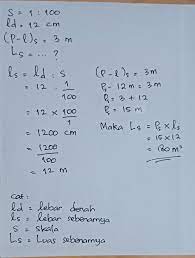 S = 1 : 100
ld = 12 cm
(P-l)s = 3 m
Ls = .... ?
ls = ld : s
= 12 : 1/100
= 12 × 100/1
= 1200 cm
= 1200/100
= 12 m
(P-l)s = 3m
Ps - 12m = 3m
Ps = 3 + 12
Ps = 15 m
Maka Ls = Ps × ls
= 15 × 12
= 180 m²
cat:
ld = lebar denah
ls = lebar sebenarnya
S = skala
Ls = Luas sebenarnya